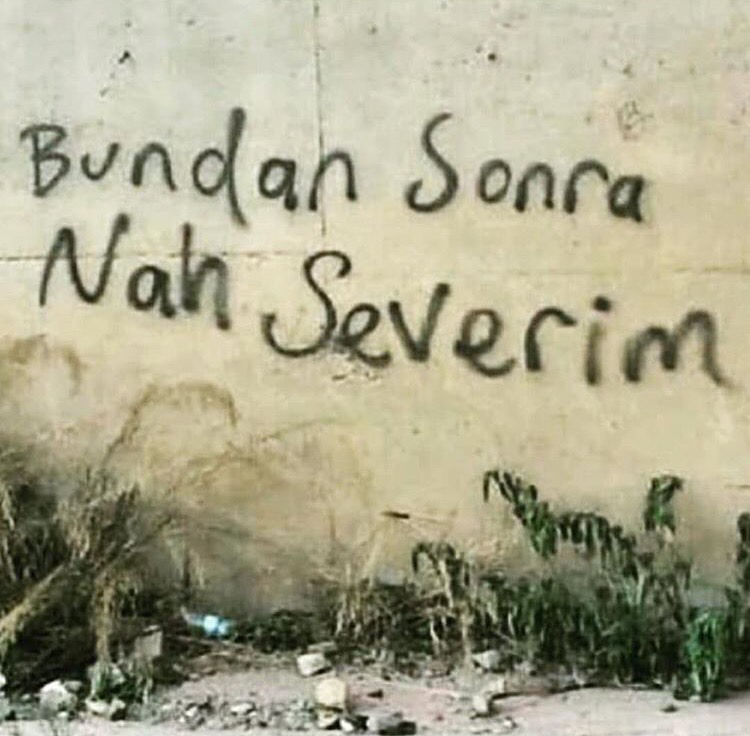 Bundan Sonra
Nah Severim